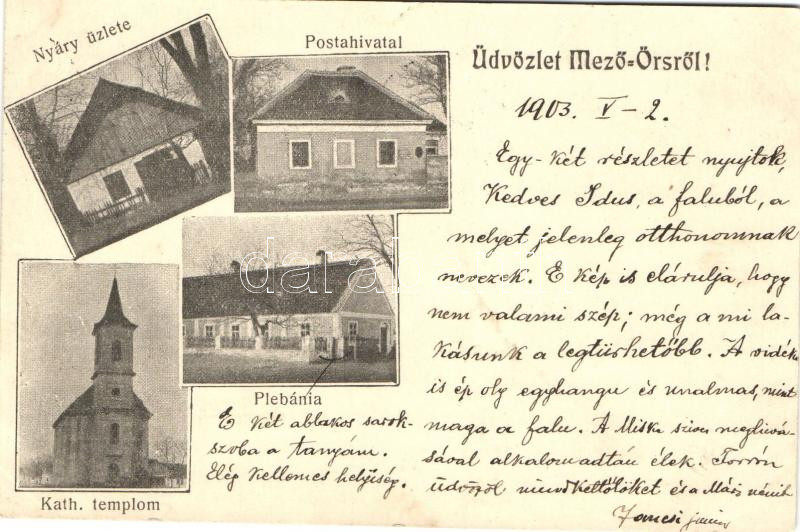 Nyáry üzlete
Postahivatal
Üdvözlet Mező-Örsről!
1903. V-2.
Egy-két részletet nyujtok,
Kedves Idus, a faluból, a
melyet jelenleg otthonomnak
nevezek. E kép is elárulja, hogy
nem valami szép; még a mi la-
kásunk a legtürhetőbb. A vidéke
is ép oly egyhangu és unalmas, mint
maga a falu. A Miska szives meghivá-
sával alkalomadtán élek. Forrón
üdvözöl mindkettőlöket és a Máriz nénit
Jancsi
Plebánia
E két ablakos sarok-
szoba a tanyám.
Elég kellemes helyiség.
Kath. templom
darabanth